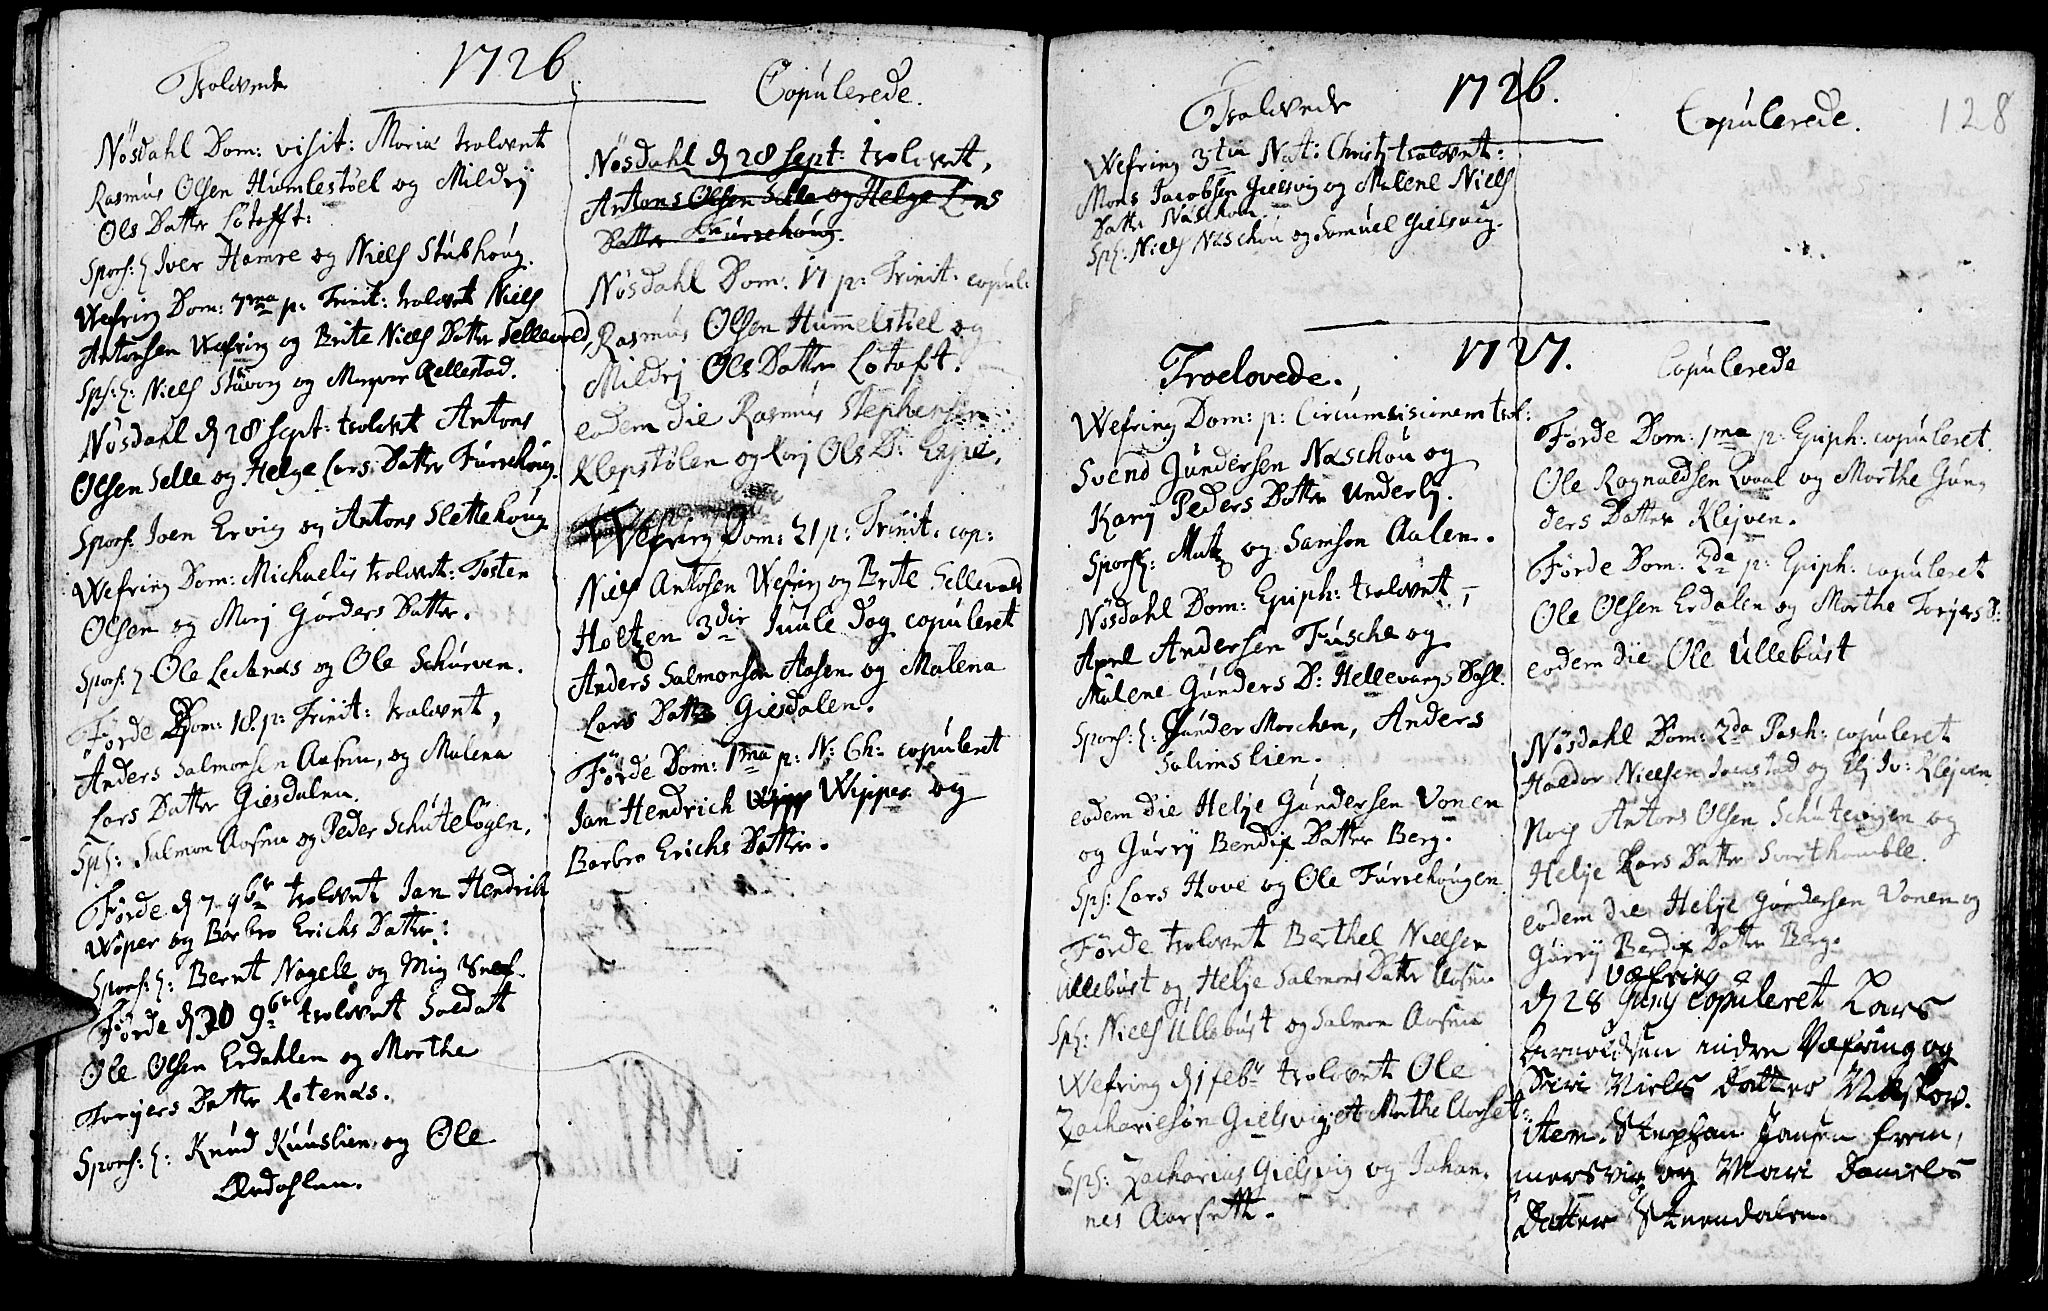 1726
Trolovede
Nösdahl Dom: visit: Mariæ trolovet
Rasmus Olsen Humlestöel og Mildrj
Ols Datter Lotofft:
Spons:ʒ Iver Hamre og Niels Stubhoug.
Wefring Dom: 7ma p: Trinit: trolovet Niels
Antonsen Wefring og Brite Niels Datter Sellevold,
Sps:ʒ: Niels og Qellestad.
Nösdahl d 28 Sept: trolovet Antons
Olsen Selle og Helge Lars Datter Furrehoug.
Spons: Joen Ervig og Antons Slettehoug
Wefring Dom: Michaelis trolovet: Tosten
Olsen og Marj Gunders Datter.
Spons:ʒ Ole og Ole Schurven.
Förde Dom: 18. p: Trinit: trolovet,
Anders Salmonsen Aasen, og Malena
Lars Datter Giesdalen.
Sps: Salmon Aasen og Peder Schutelögen.
Förde d 7. 9br trolovet Jan Hendrik
Wöper og Barbro Erichs Datter:
Spons:ʒ: Bernt Nagell og Mig Self.
Förde d 30 9br trolovet Soldat
Ole Olsen Erdahlen og Morthe
Torgers Datter Rotenæs.
Spons:ʒ: Knud Kuuslien og Ole
Ærdahlen.
Copulerede.
Nösdahl d 28 Sept: trolovet,
Antons Olsen Selle og Helge Lars
Datter Furrehoug.
Nösdahl Dom: 17 p: Trinit: copul:
Rasmus Olsen Hummelstöel og
Mildrj Ols Datter Lotoft.
eodem die Rasmus Stephensen
Klepstölen og Karj Ols D: Espe.
Wefring Dom: 21 p: Trinit: cop:
Niels Antosen Wefring og Brite Sellevold
Holsen 3die Juule Dag copuleret
Anders Salmonsen Aasen og Malena
Lars Datter Giesdalen.
Förde Dom: 1ma p: N: Ch: copuleret
Jan Hendrich Wipp Wipper og
Barbro Erichs Datter.
1726.
128
Trolovede
Wefring 3tia Nat: Christj trolovet:
Mons Jacobsen Gielsvig og Malene Niels
Datter Næschou
Sps: Niels Næschou og Samuel Gielsvig.
Copulerede.
1727.
Troelovede.
Wefring Dom: p: Circumsisionem trol:
Svend Gundersen Næschou og
Karj Peders Datter Underlj.
Sponsʒ: Matz og Samson Aalen.
Nösdahl Dom: Epiph: trolovet,
Apel Andersen Fusche og
Malene Gunders D: Hellevangs Dahl.
Spons:ʒ: Gunder Morchen, Anders
Solimslien.
eodem die Helje Gundersen Vonen
og Gurrj Bendix Datter Berg.
Sps: Lars Hove og Ole Furrehougen
Förde trolovet Berthel Nielsen
Ullebust og Helje Salmons Datter Aasen
Spʒ: Niels Ullebust og Salmon Aasen
Wefring d 1 febr trolovet Ole
Zachariesön Gielsvig, et Morthe Aarset:
Sps: Zacharias Gielsvig og Johan-
nes Aarseth.
Copulerede
Förde Dom: 1ma p: Epiph: copuleret
Ole Rognaldsen Qvaal og Morthe Gun
ders Datter Klejven.
Förde Dom: 2da p: Epiph: copuleret
Ole Olsen Erdalen og Morthe Torgers D:
eodem die Ole Ullebust
Nösdahl Dom: 2da Pasch: copuleret
Haldor Nielsen og Elj Iv: Klejven.
Noch Antons Olsen og
Helje Lars Datter Svorthumble.
eodem die Helje Gundersen Vonen og
Gurrj Bendix Datter Berg.
Væfring
d 28 Junj copuleret Lars
Arnoldsen indre Væfring og
Siri Niels Datter Næskow.
item. Stephan Jansen frem,
mersvig og Mari Daniels
Datter Steendalen.